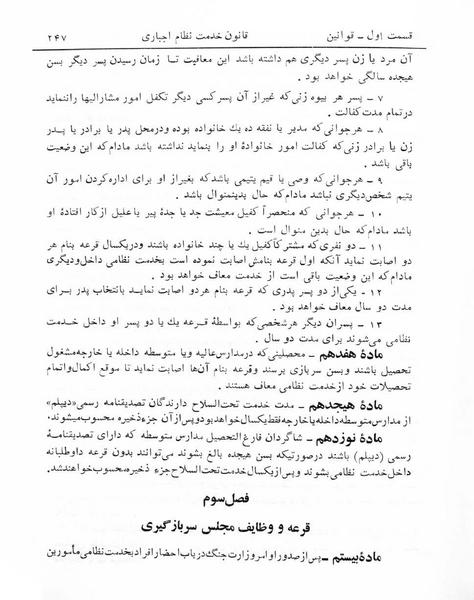 قسمت اول ــ قوانین قانون خدمت نظام اجباری ۲۴۷
آن مرد یا زن پسر دیگری هم داشته باشد این معافیت تا زمان رسیدن پسر دیگر بسن
هیجده سالگی خواهد بود .
۷ ــ پسر هر بیوه زنی که غیر از آن پسر کسی دیگر تکفل امور مشارالیها را ننماید
در تمام مدت کفالت .
۸ ــ هر جوانی که مدیر یا نفقه ده یك خانواده بوده و در محل پدر یا برادر یا پدر
زن یا برادر زنی که کفالت امور خانوادهٔ او را بنماید نداشته باشد مادام که این وضعیت
باقی است .
۹ ــ هر جوانی که وصی یا قیم یتیمی باشد که بغیر از او برای اداره کردن امور آن
یتیم شخص دیگری نباشد مادام که حال بدینمنوال باشد .
۱۰ ــ هر جوانی که منحصراً کفیل معیشت جد یا جدهٔ پیر یا علیل از کار افتادهٔ او
باشد مادام که حال بدین منوال است .
۱۱ ــ دو نفری که مشترکاً کفیل یك یا چند خانواده باشند و در یکسال قرعه بنام هر
دو اصابت نماید آنکه اول قرعه بنامش اصابت نموده است بخدمت نظامی داخل و دیگری
مادام که این وضعیت باقی است از خدمت معاف خواهد بود .
۱۲ ــ یکی از دو پسر پدری که قرعه بنام هر دو اصابت نماید بانتخاب پدر برای
مدت دو سال معاف خواهد بود .
۱۳ ــ پسران دیگر هر شخصی که بواسطهٔ قرعه یك یا دو پسر او داخل خدمت
نظامی میشوند برای مدت دو سال .
مادهٔ هفدهم ــ محصلینی که در مدارس عالیه و یا متوسطه داخله یا خارجه مشغول
تحصیل باشند و بسن سربازی برسند و قرعه بنام آنها اصابت نماید تا موقع اکمال و اتمام
تحصیلات خود از خدمت نظامی معاف هستند .
مادهٔ هیجدهم ــ مدت خدمت تحت السلاح دارندگان تصدیقنامه رسمی «دیپلم»
از مدارس متوسطه داخله یا خارجه فقط یکسال خواهد بود و پس از آن جزء ذخیره محسوب میشوند .
مادهٔ نوزدهم ــ شاگردان فارغ التحصیل مدارس متوسطه که دارای تصدیقنامهٔ
رسمی (دیپلم) باشند در صورتیکه بسن هیجده بالغ بشوند می‌توانند بدون قرعه داوطلبانه
داخل خدمت نظامی بشوند و پس از یکسال خدمت تحت السلاح جزء ذخیره محسوب خواهند شد .
فصل سوم
قرعه و وظایف مجلس سربازگیری
مادهٔ بیستم ــ پس از صدور اوامر وزارت جنگ در باب احضار افراد بخدمت نظامی مأمورین